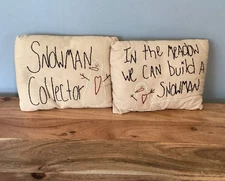 SNOWMAN
Collector
IN the MEADOW
we CAN buiLd A
SNOWMAN